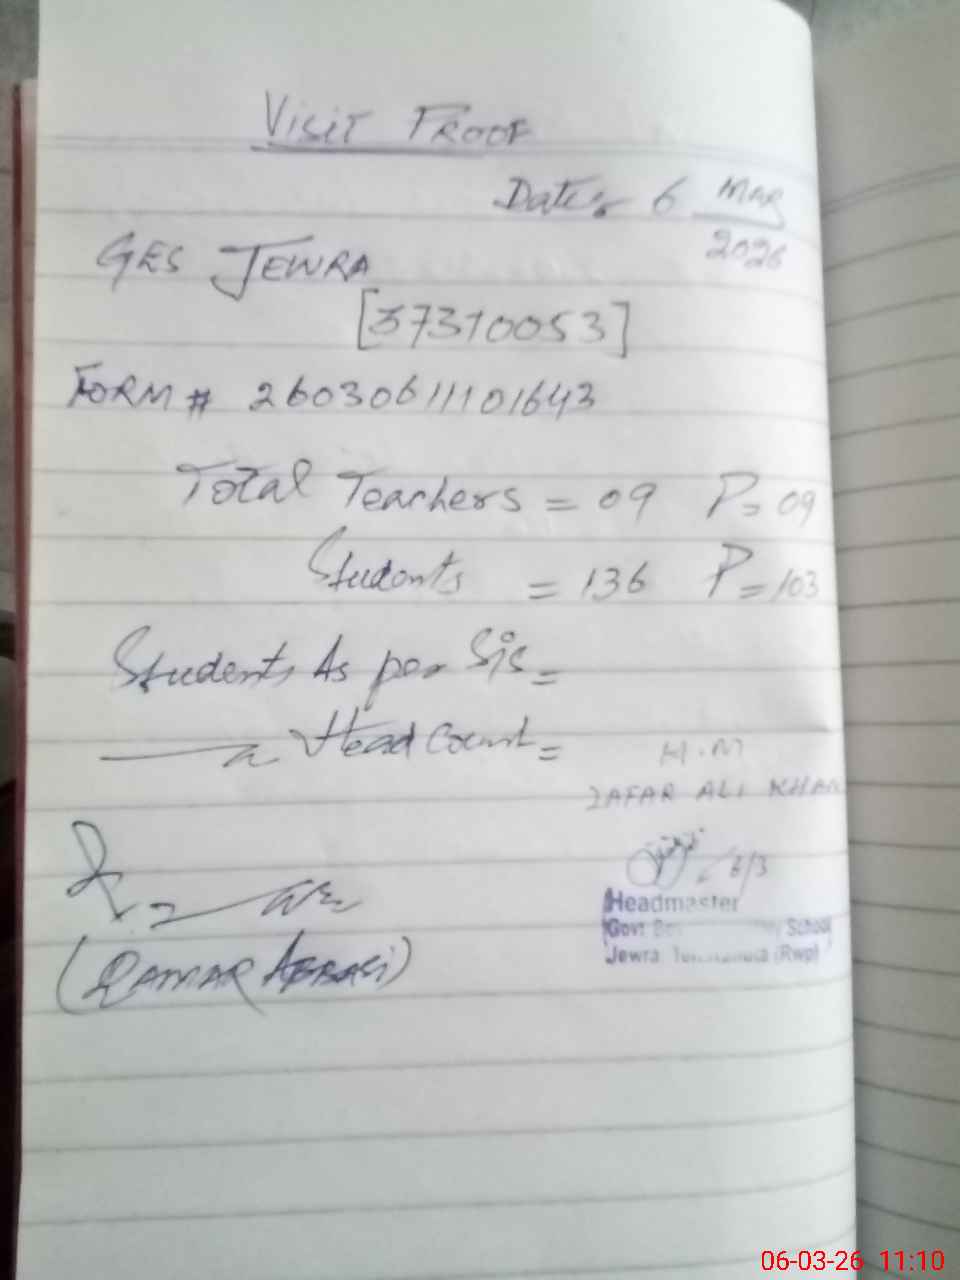 Visit Proof
Date: 6 Mar
2026
GES JEWRA
[37310053]
FORM # 26030611101643
Total Teachers = 09 P= 09
Students = 136 P= 103
Students As per Sis =
Head Count =
H.M
ZAFAR ALI KHAN
6/3
Headmaster
Govt School
Jewra (Rwp)
(QAMAR ABBASI)
06-03-26 11:10